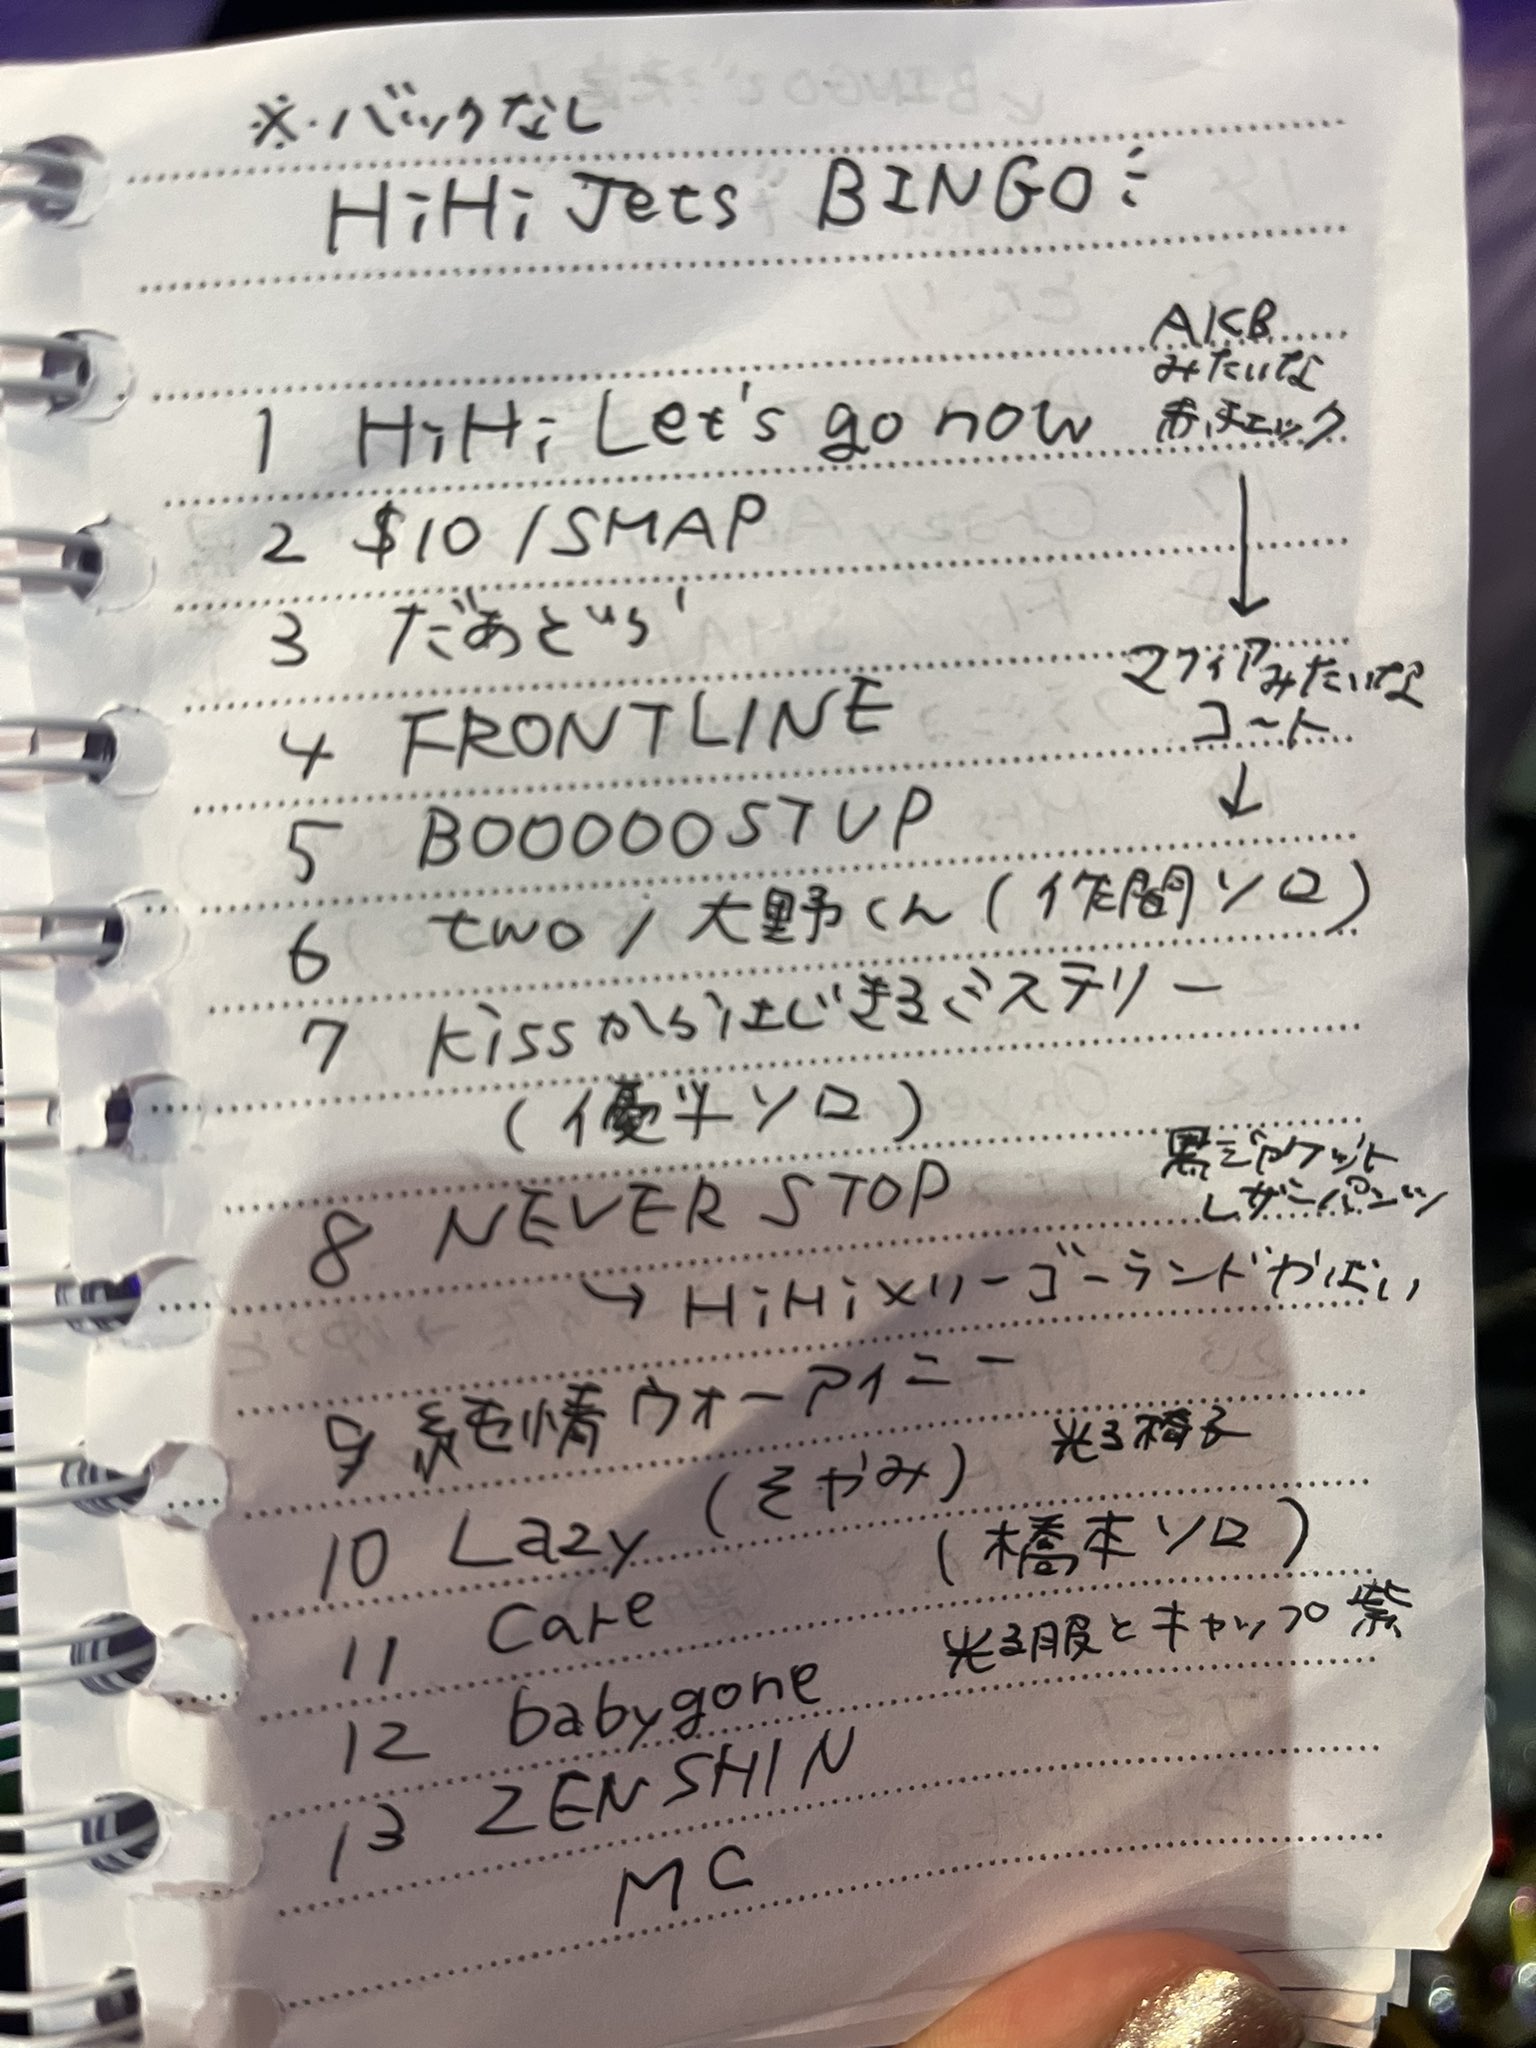 ※・バックなし
HiHi Jets BINGO!
AKB
みたいな
赤チェック
1 HiHi Let's go now
2 $10 / SMAP
3 だあどぅら
マフィアみたいな
コート
4 FRONTLINE
5 BOOOOOSTUP
6 two / 大野くん (作間ソロ)
7 kissからはじまるミステリー
(優斗ソロ)
黒ジャケット
レザーパンツ
8 NEVER STOP
→ HiHiメリーゴーランドやばい
9 純情ウォーアイニー
(そやみ) 光る椅子
10 Lazy (橋本ソロ)
11 Care
光る服とキャップ 紫
12 babygone
13 ZENSHIN
MC